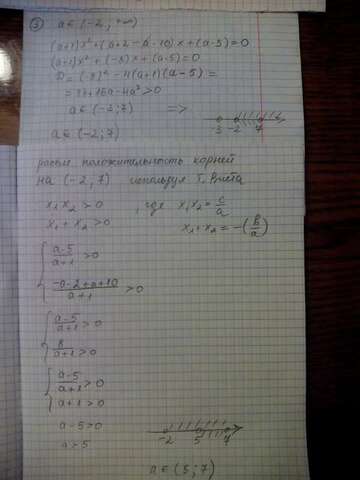 ③ a ∈ (-2; +∞)
(a+1)x² + (a+2-a-10)x + (a-5) = 0
(a+1)x² + (-8)x + (a-5) = 0
D = (-8)² - 4(a+1)(a-5) =
= 84 + 16a - 4a² > 0
a ∈ (-3; 7) =>
-3 -2 7
a ∈ (-2; 7)
рассм. положительность корней
на (-2; 7) используя Т. Виета
x₁x₂ > 0 , где x₁x₂ = c/a
x₁ + x₂ > 0 x₁ + x₂ = -(b/a)
{ (a-5)/(a+1) > 0
(-a-2+a+10)/(a+1) > 0
{ (a-5)/(a+1) > 0
8/(a+1) > 0
{ (a-5)/(a+1) > 0
a+1 > 0
a-5 > 0
-2 5 7
a > 5
a ∈ (5; 7)